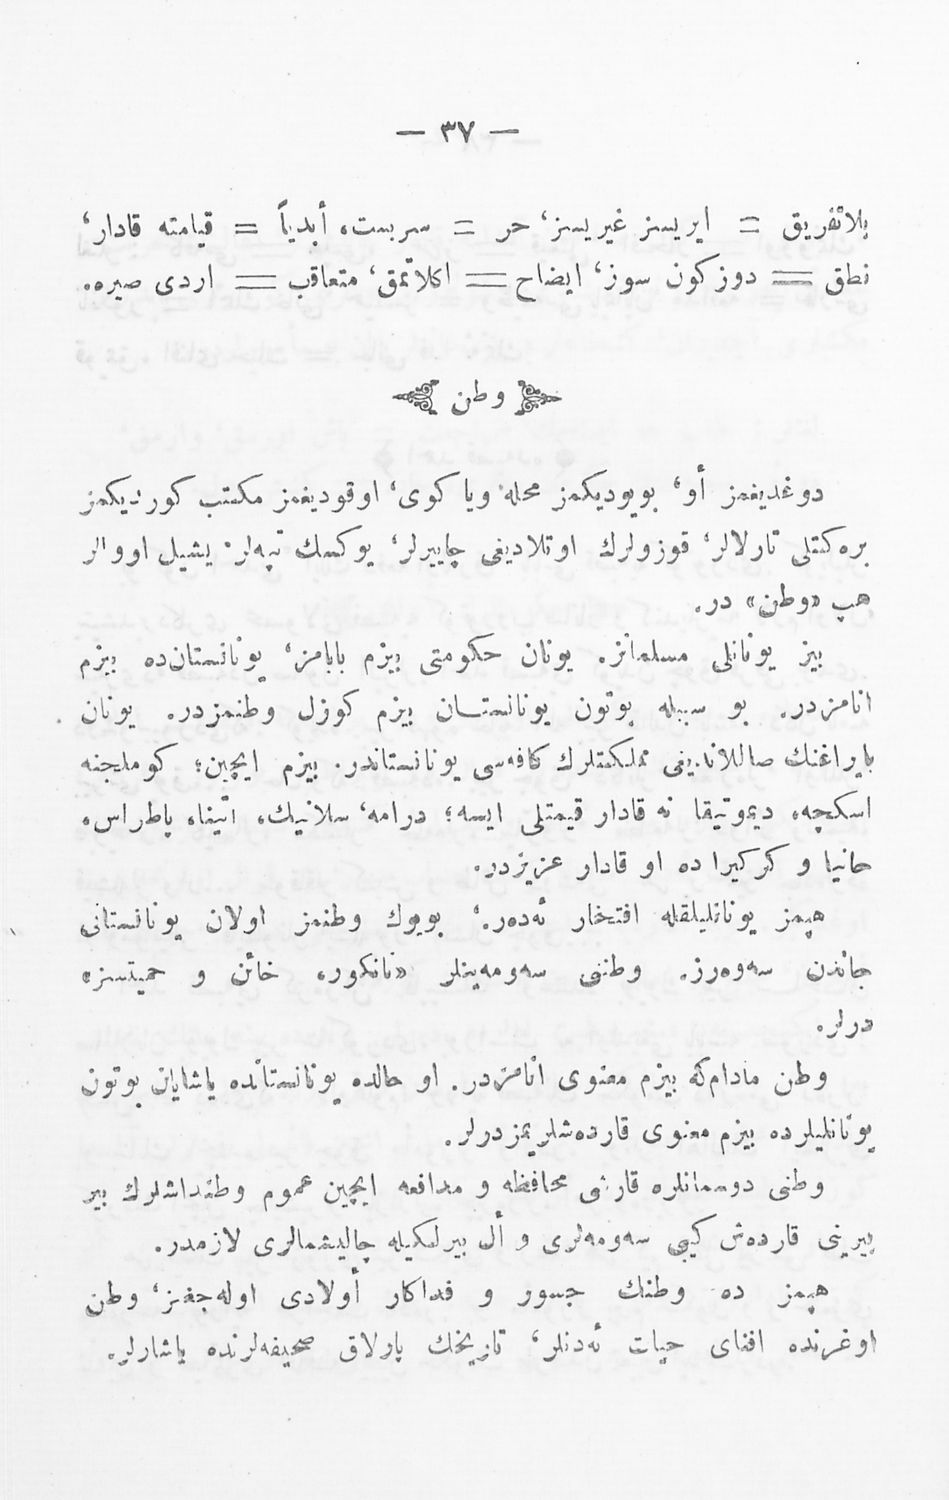 — ٣٧ —
بلاتفريق = ايريسز غيريسز، حر = سربست، أبدياً = قيامته قادار،
نطق = دوزكون سوز، ايضاح = اكلاتمق، متعاقب = اردى صيره.
وطن
دوغديغمز أو، بويوديكمز محله ويا كوى، اوقوديغمز مكتب كورديكمز
بره كتلى تارلالر، قوزولرك اوتلاديغى چايرلر، يوكسك تپه‌لر. يشيل اووالر
هپ «وطن» در.
بيز يونانلى مسلمانز. يونان حكومتى بيزم بابامز، يونانستان‌ده بيزم
انامزدر. بو سببله بوتون يونانستان بيزم كوزل وطنمزدر. يونان
بايراغنك صاللانديغى مملكتلرك كافه‌سى يونانستاندر. بيزم ايچين؛ كوملجنه
اسكچه، ديموتيقا نه قادار قيمتلى ايسه؛ درامه، سلانيك، اتينا، پاطراس،
حانيا و كركيرا ده او قادار عزيزدر.
هپمز يونانليلقله افتخار ئه‌ده‌ر، بويوك وطنمز اولان يونانستانى
جاندن سه‌وه‌رز. وطنى سه‌ومه‌ينلر «نانكور، خائن و حميتسز»
درلر.
وطن مادام‌كه بيزم معنوى انامزدر. او حالده يونانستانده ياشايان بوتون
يونانليلرده بيزم معنوى قارده‌شلريمزدرلر.
وطنى دوسمانلره قارشى محافظه و مدافعه ايچين عموم وطنداشلرك بير
بيرينى قارده‌ش كيبى سه‌ومه‌لرى و أل بيرلكيله چاليشمالرى لازمدر.
هپمز ده وطنك جسور و فداكار أولادى اوله‌جغز، وطن
اوغرنده افناى حيات ئه‌دنلر، تاريخك پارلاق صحيفه‌لرنده ياشارلر.